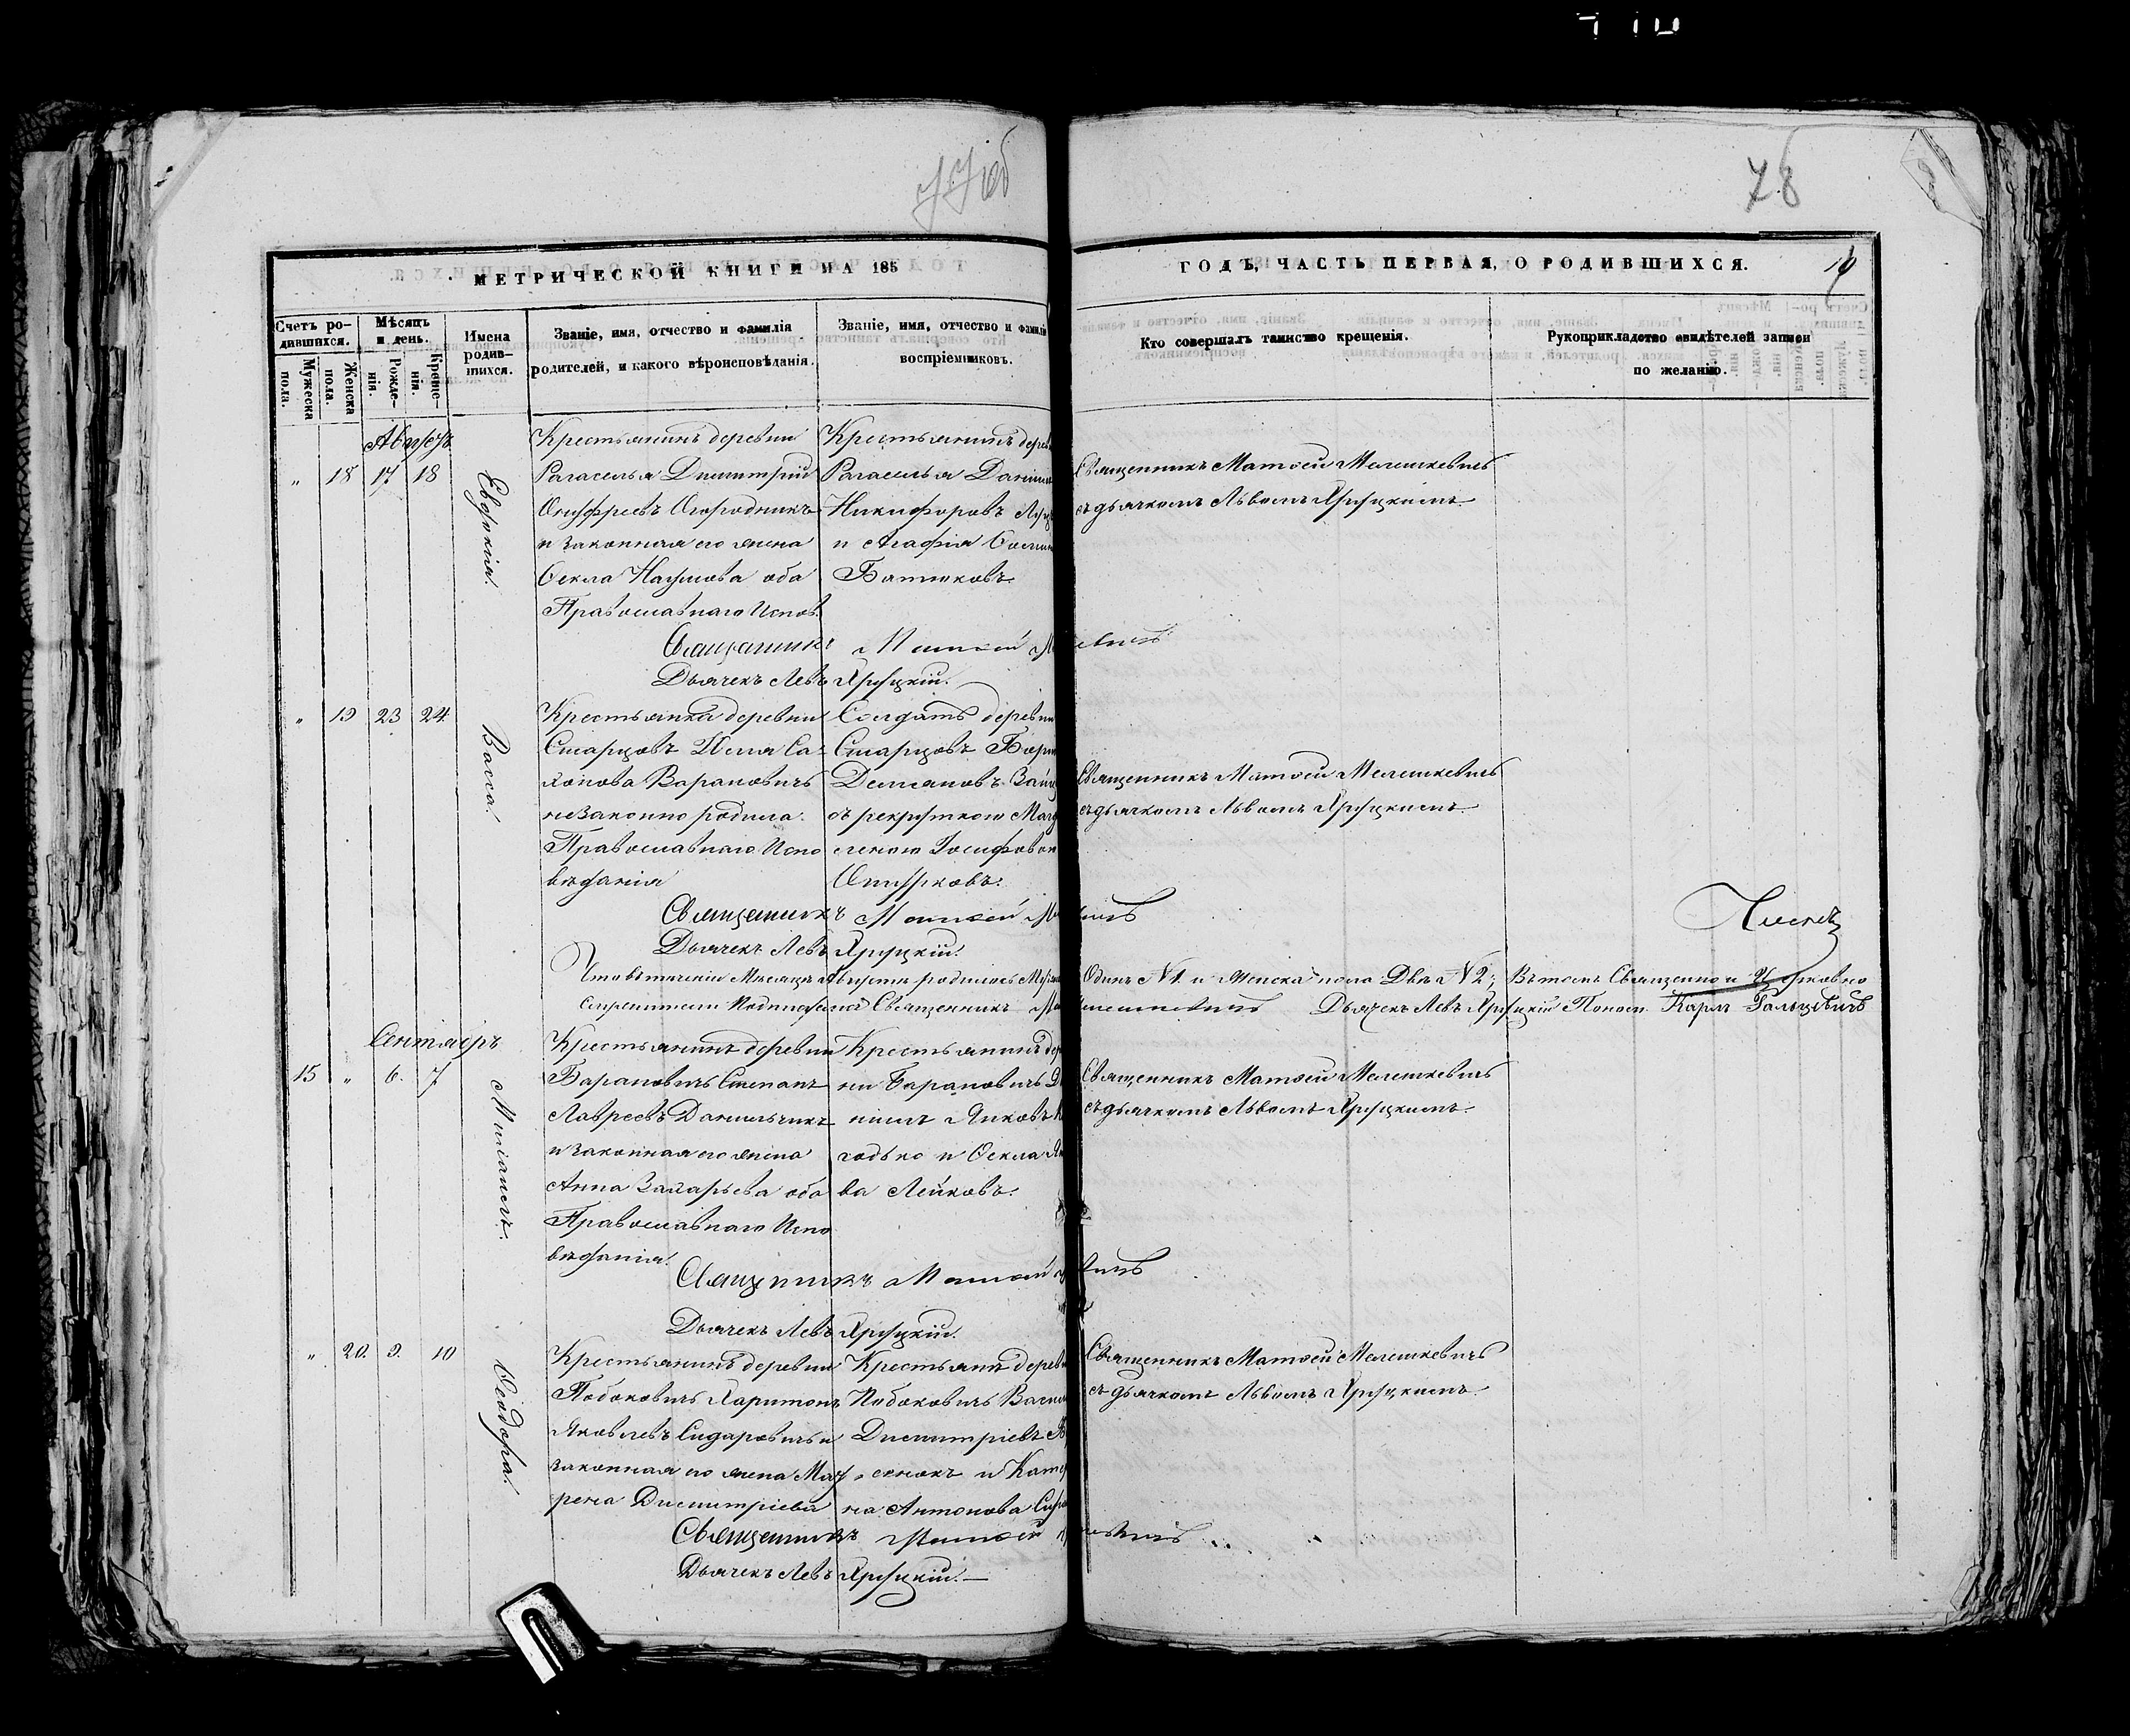 77 об
78
МЕТРИЧЕСКОЙ КНИГИ НА 185
ГОДЪ, ЧАСТЬ ПЕРВАЯ, О РОДИВШИХСЯ.
Счетъ ро-
дившихся.
Мужеска
пола.
Женска
пола.
Мѣсяцъ
и день.
Рожде-
нія.
Креще-
нія.
Имена
родив-
шихся.
Званіе, имя, отчество и фамилія
родителей, и какого вѣроисповѣданія.
Званіе, имя, отчество и фамилія
воспріемниковъ.
Кто совершалъ таинство крещенія.
Рукоприкладство свидѣтелей записи
по желанію.
Августъ
„ 18 17 18
Евдокія.
Крестьянинъ деревни
Рагаселья Димитрій
Онуфреевъ Огородникъ
и законная его жена
Ѳекла Наумова оба
Православнаго Испов.
Крестьянинъ дерев
Рагаселья Данiи
Никифоровъ
и Агафія
Священникъ Матѳей Мелешкевичъ
съ дьячкомъ Львомъ Яруцкимъ.
Священникъ Матѳей М евичъ
Дьячекъ Левъ Яруцкій.
„ 19 23 24
Васса.
Крестьянка деревни
Старцовъ
Варановичъ
незаконно родила.
Православнаго Испо
вѣданія
Солдатъ деревни
Старцовъ
Демяновъ
съ рекруткою Магд
леною Іосифовою
Священникъ Матѳей Мелешкевичъ
съ дьячкомъ Львомъ Яруцкимъ.
Священникъ Матѳей М вичъ
Дьячекъ Левъ Яруцкій.
Что въ теченіи Месяца Августа родилось Муж Одинъ N1. и Женска пола Двѣ N2; Въ томъ Священно и Церковно
служители Подписуемся Священникъ Ма лешкевичъ Дьячекъ Левъ Яруцкій Поном. Карлъ Гальцевичъ
Сентябрь
15 „ 6. 7
Михаилъ.
Крестьянинъ деревни
Барановичъ Степанъ
Лавреевъ Данильчикъ
и законная его жена
Анна Захарьева оба
Православнаго Испо
вѣданія.
Крестьянинъ дер
ни Барановичъ Д
ніилъ Яковъ
и Ѳекла Як
ва Лейковъ.
Священникъ Матѳей Мелешкевичъ
съ дьячкомъ Львомъ Яруцкимъ.
Священникъ Матѳей вичъ
Дьячекъ Левъ Яруцкій.
„ 20. 9. 10
Ѳеодора.
Крестьянинъ деревни
Побоковичъ Харитонъ
Яковлевъ Сидаровичъ и
законная его жена Мау
рена Димитріева
Крестьянинъ дерев
Побоковичъ Васил
Димитріевъ
и Кате
на Антонова
Священникъ Матѳей Мелешкевичъ
съ дьячкомъ Львомъ Яруцкимъ.
Священникъ Матѳей вичъ
Дьячекъ Левъ Яруцкій.